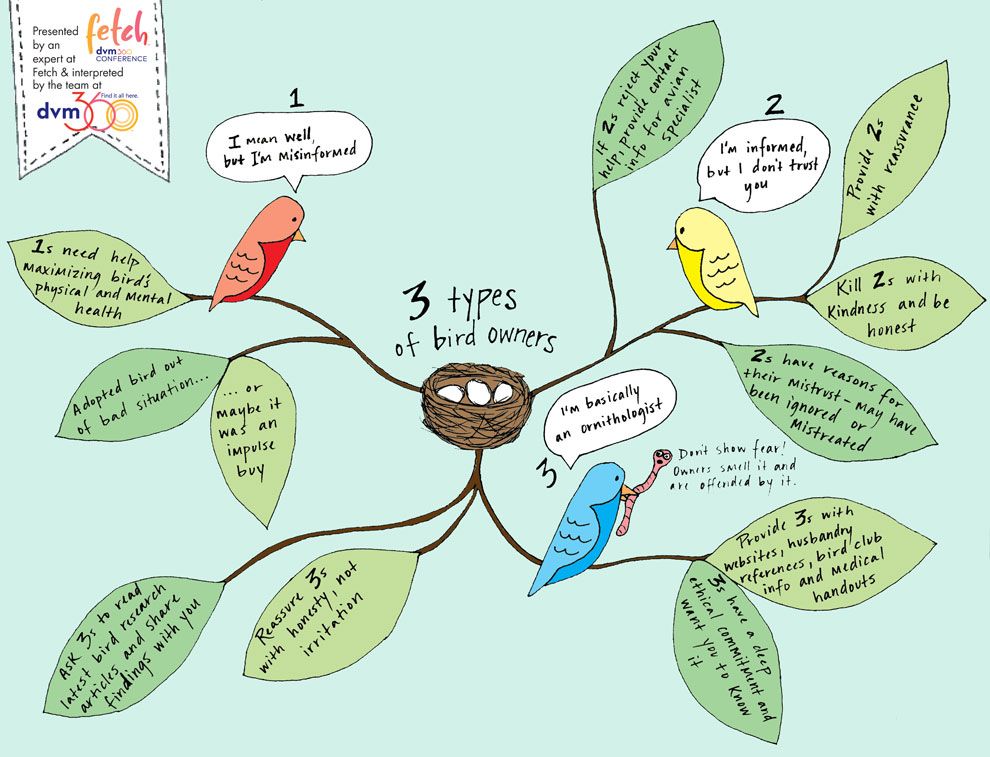 Presented
by an
expert at
Fetch & interpreted
by the team at
fetch
dvm360
CONFERENCE
Find it all here.
dvm360
3 types
of bird owners
1
I mean well,
but I'm misinformed
1s need help
maximizing bird's
physical and mental
health
Adopted bird out
of bad situation...
...or
maybe it
was an
impulse
buy
2
I'm informed,
but I don't trust
you
If 2s reject your
help, provide contact
info for avian
specialist
Provide 2s
with reassurance
Kill 2s with
Kindness and be
honest
2s have reasons for
their mistrust - may have
been ignored or
mistreated
3
I'm basically
an ornithologist
Don't show fear!
Owners smell it and
are offended by it.
Provide 3s with
websites, husbandry
references, bird club
info and medical
handouts
3s have a deep
ethical commitment and
want you to know
it
Reassure 3s
with honesty, not
irritation
Ask 3s to read
latest bird research
articles and share
findings with you